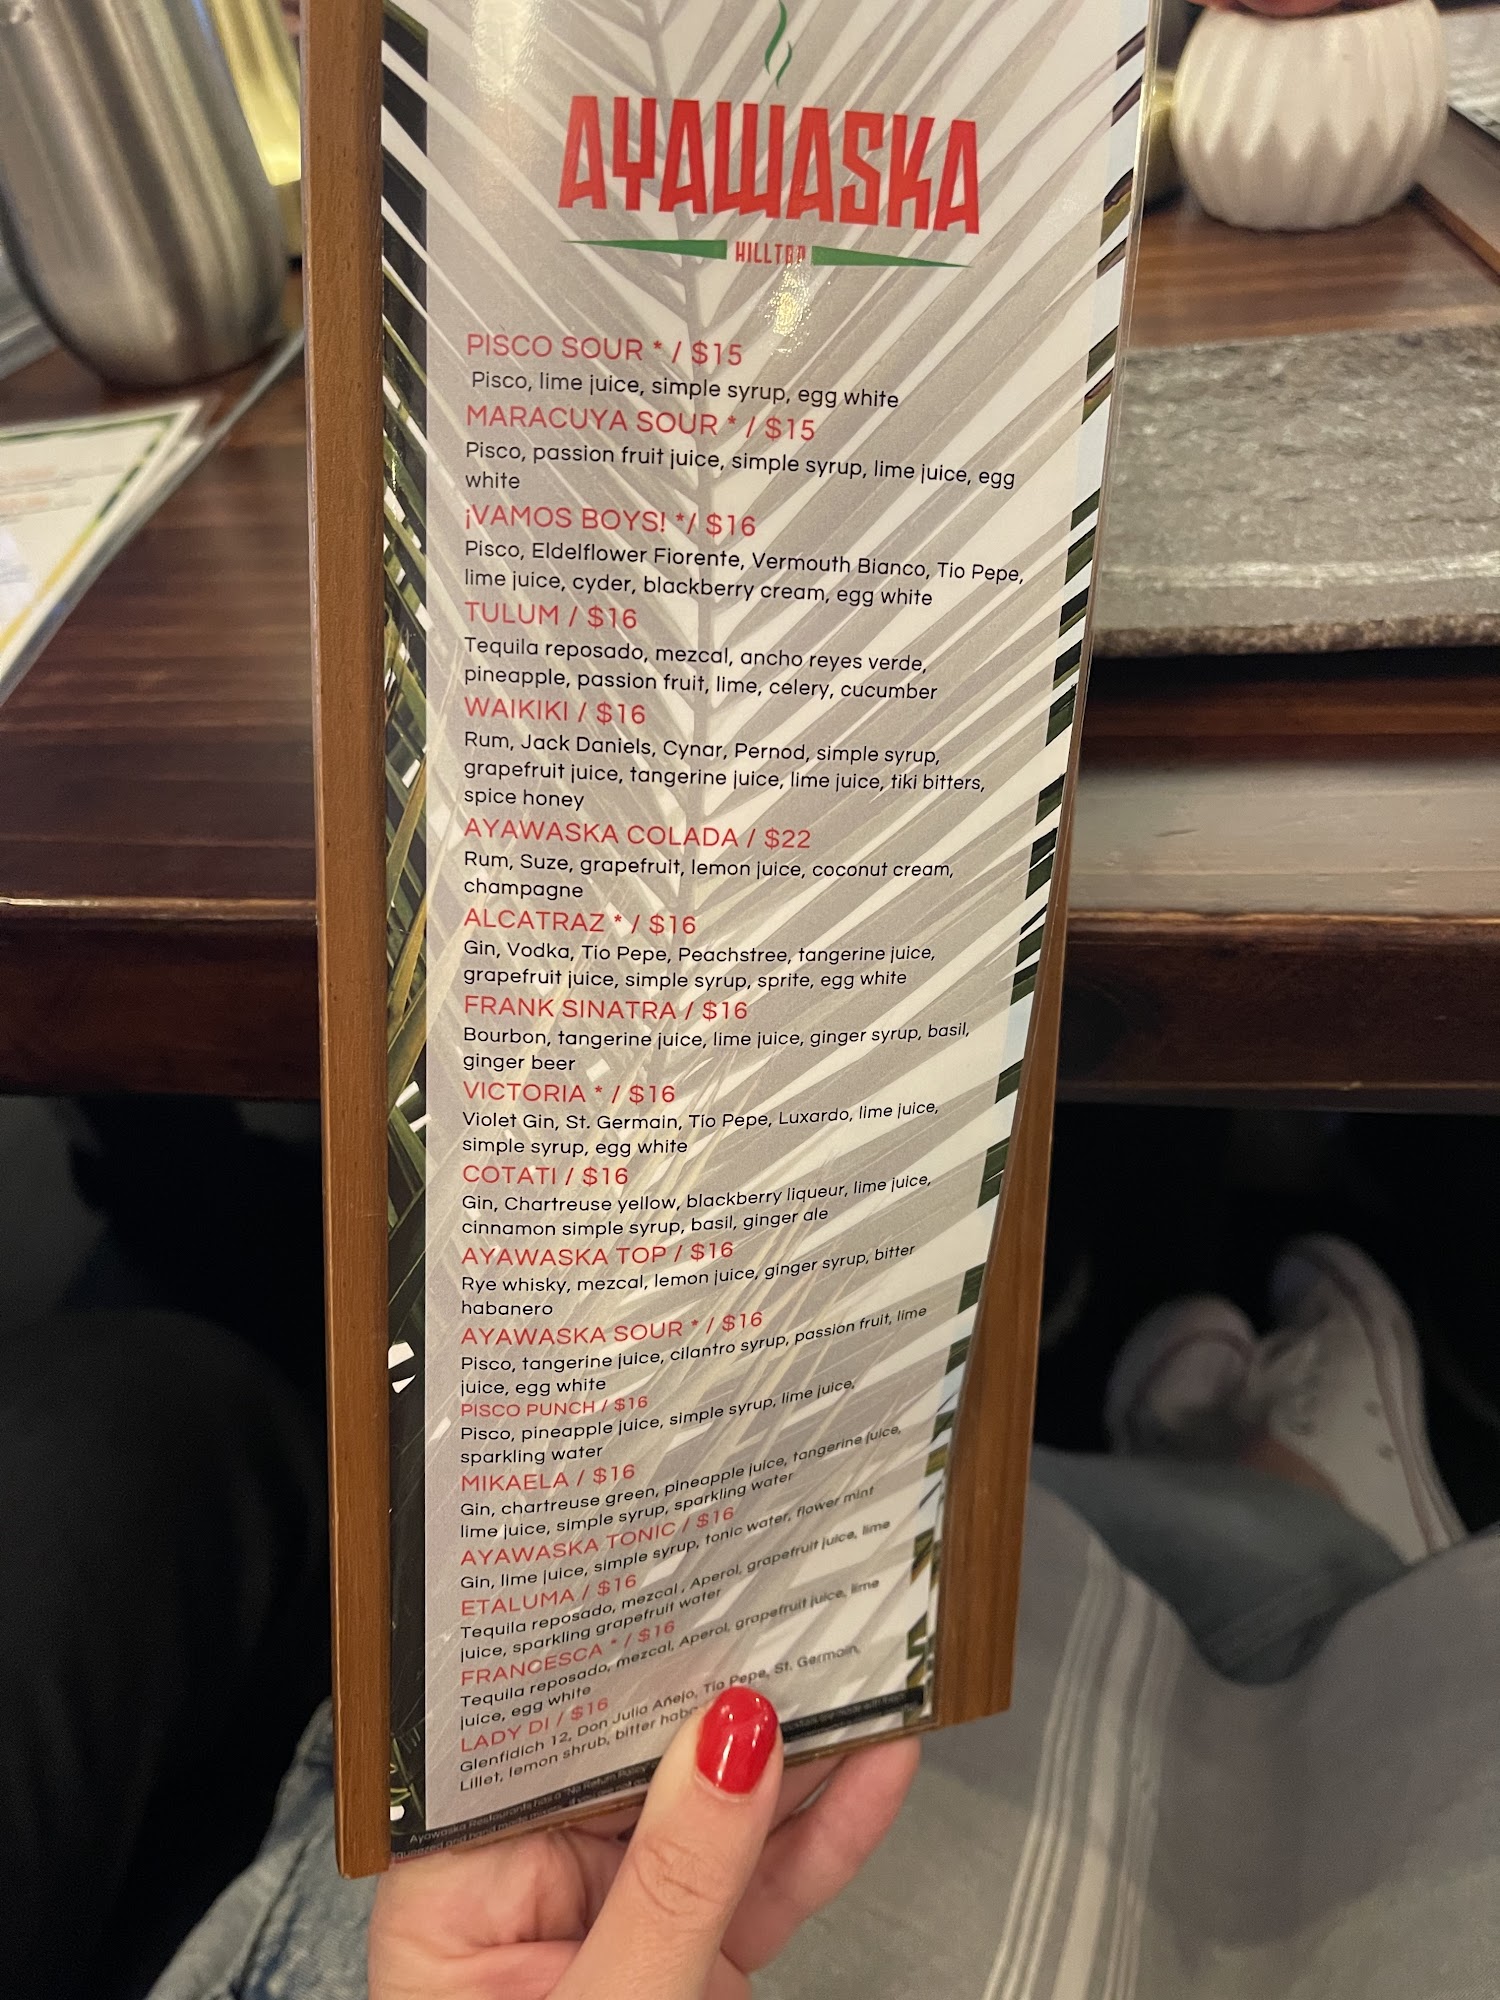 AYAWASKA
HILLTOP
PISCO SOUR * / $15
Pisco, lime juice, simple syrup, egg white
MARACUYA SOUR * / $15
Pisco, passion fruit juice, simple syrup, lime juice, egg
white
¡VAMOS BOYS! */ $16
Pisco, Eldelflower Fiorente, Vermouth Bianco, Tio Pepe,
lime juice, cyder, blackberry cream, egg white
TULUM / $16
Tequila reposado, mezcal, ancho reyes verde,
pineapple, passion fruit, lime, celery, cucumber
WAIKIKI / $16
Rum, Jack Daniels, Cynar, Pernod, simple syrup,
grapefruit juice, tangerine juice, lime juice, tiki bitters,
spice honey
AYAWASKA COLADA / $22
Rum, Suze, grapefruit, lemon juice, coconut cream,
champagne
ALCATRAZ * / $16
Gin, Vodka, Tio Pepe, Peachstree, tangerine juice,
grapefruit juice, simple syrup, sprite, egg white
FRANK SINATRA / $16
Bourbon, tangerine juice, lime juice, ginger syrup, basil,
ginger beer
VICTORIA * / $16
Violet Gin, St. Germain, Tío Pepe, Luxardo, lime juice,
simple syrup, egg white
COTATI / $16
Gin, Chartreuse yellow, blackberry liqueur, lime juice,
cinnamon simple syrup, basil, ginger ale
AYAWASKA TOP / $16
Rye whisky, mezcal, lemon juice, ginger syrup, bitter
habanero
AYAWASKA SOUR * / $16
Pisco, tangerine juice, cilantro syrup, passion fruit, lime
juice, egg white
PISCO PUNCH / $16
Pisco, pineapple juice, simple syrup, lime juice,
sparkling water
MIKAELA / $16
Gin, chartreuse green, pineapple juice, tangerine juice,
lime juice, simple syrup, sparkling water
AYAWASKA TONIC / $16
Gin, lime juice, simple syrup, tonic water, flower mint
ETALUMA / $16
Tequila reposado, mezcal , Aperol, grapefruit juice, lime
juice, sparkling grapefruit water
FRANCESCA * / $16
Tequila reposado, mezcal, Aperol, grapefruit juice, lime
juice, egg white
LADY DI / $16
Glenfidich 12, Don Julio Añejo, Tío Pepe, St. Germain,
Lillet, lemon shrub, bitter
Ayawaska Restaurants has a "No Return Policy"